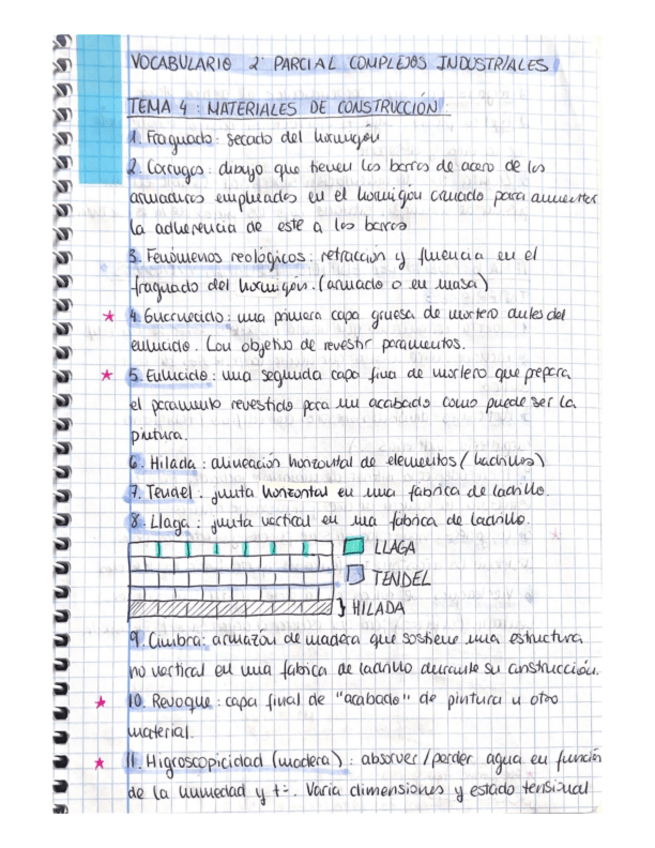 VOCABULARIO 2º PARCIAL COMPLEJOS INDUSTRIALES
TEMA 4 : MATERIALES DE CONSTRUCCIÓN.
1. Fraguado: secado del hormigón
2. Corrugas: dibujo que tienen las barras de acero de las
armaduras empleadas en el hormigón armado para aumentar
la adherencia de este a las barras
3. Fenómenos reológicos: retracción y fluencia en el
fraguado del hormigón. (armado o en masa)
★ 4. Guarnecido: una primera capa gruesa de mortero antes del
enlucido. Con objetivo de revestir paramentos.
★ 5. Enlucido: una segunda capa fina de mortero que prepara
el paramento revestido para un acabado como puede ser la
pintura.
6. Hilada: alineación horizontal de elementos (ladrillos)
7. Tendel: junta horizontal en una fabrica de ladrillo.
8. Llaga: junta vertical en una fabrica de ladrillo.
LLAGA
TENDEL
} HILADA
9. Cimbra: armazón de madera que sostiene una estructura
no vertical en una fabrica de ladrillo durante su construcción.
★ 10. Revoque: capa final de "acabado" de pintura u otro
material.
★ 11. Higroscopicidad (madera): absorver/perder agua en función
de la humedad y tª. Varia dimensiones y estado tensional